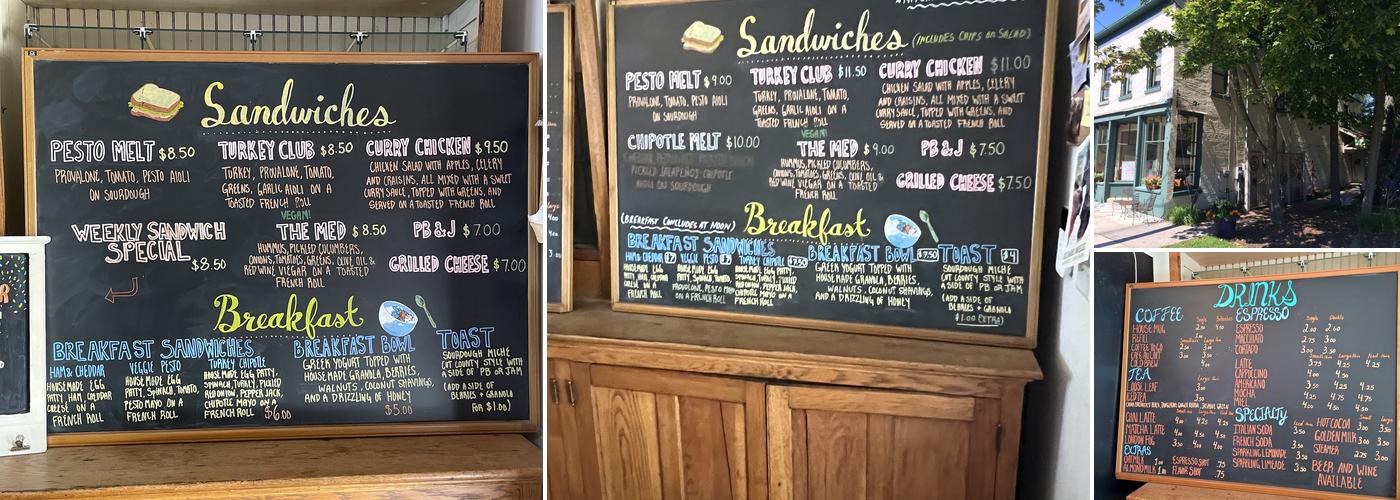 Sandwiches
PESTO MELT $8.50
PROVALONE, TOMATO, PESTO AIOLI
ON SOURDOUGH
TURKEY CLUB $8.50
TURKEY, PROVALONE, TOMATO,
GREENS, GARLIC AIOLI ON A
TOASTED FRENCH ROLL
CURRY CHICKEN $9.50
CHICKEN SALAD WITH APPLES, CELERY
AND CRAISINS, ALL MIXED WITH A SWEET
CURRY SAUCE, TOPPED WITH GREENS, AND
SERVED ON A TOASTED FRENCH ROLL
WEEKLY SANDWICH
SPECIAL
$8.50
VEGAN!
THE MED $8.50
HUMMUS, PICKLED CUCUMBERS,
ONIONS, TOMATOES, GREENS, OLIVE OIL &
RED WINE VIEGAR ON A TOASTED
FRENCH ROLL
PB & J $7.00
GRILLED CHEESE $7.00
Breakfast
BREAKFAST SANDWICHES
HAM & CHEDDAR
HOUSE MADE EGG
PATTY, HAM, CHEDDAR
CHEESE ON A
FRENCH ROLL
VEGGIE PESTO
HOUSE MADE EGG
PATTY, SPINACH, TOMATO,
PESTO MAYO ON A
FRENCH ROLL
TURKEY CHIPOTLE
HOUSE MADE EGG PATTY,
SPINACH, TURKEY, PICKLED
RED ONION, PEPPER JACK,
CHIPOTLE MAYO ON A
FRENCH ROLL $6.00
BREAKFAST BOWL
GREEK YOGURT TOPPED WITH
HOUSE MADE GRANOLA, BERRIES,
WALNUTS, COCONUT SHAVINGS,
AND A DRIZZLING OF HONEY
$5.00
TOAST
SOURDOUGH MICHE
CUT COUNTY STYLE WITH
A SIDE OF PB OR JAM
(ADD A SIDE OF
BERRIES + GRANOLA
FOR $1.00)
Sandwiches (INCLUDES CHIPS OR SALAD)
PESTO MELT $9.00
PROVALONE, TOMATO, PESTO AIOLI
ON SOURDOUGH
TURKEY CLUB $11.50
TURKEY, PROVALONE, TOMATO,
GREENS, GARLIC AIOLI ON A
TOASTED FRENCH ROLL
CURRY CHICKEN $11.00
CHICKEN SALAD WITH APPLES, CELERY
AND CRAISINS, ALL MIXED WITH A SWEET
CURRY SAUCE, TOPPED WITH GREENS, AND
SERVED ON A TOASTED FRENCH ROLL
CHIPOTLE MELT $10.00
PICKLED JALAPEÑOS, CHIPOTLE
AIOLI ON SOURDOUGH
VEGAN!
THE MED $9.00
HUMMUS, PICKLED CUCUMBERS,
ONIONS, TOMATOES, GREENS, OLIVE OIL &
RED WINE VIEGAR ON A TOASTED
FRENCH ROLL
PB & J $7.50
GRILLED CHEESE $7.50
(BREAKFAST CONCLUDES AT NOON)
Breakfast
BREAKFAST SANDWICHES
HAM & CHEDDAR $7
HOUSE MADE EGG
PATTY, HAM, CHEDDAR
CHEESE ON A
FRENCH ROLL
VEGGIE PESTO $7
HOUSE MADE EGG
PATTY, SPINACH, TOMATO,
PROVALONE, PESTO MAYO
ON A FRENCH ROLL
TURKEY CHIPOTLE $7.50
HOUSE MADE EGG PATTY,
SPINACH, TURKEY, PICKLED
RED ONION, PEPPER JACK,
CHIPOTLE MAYO ON A
FRENCH ROLL
BREAKFAST BOWL $7.50
GREEK YOGURT TOPPED WITH
HOUSE MADE GRANOLA, BERRIES,
WALNUTS, COCONUT SHAVINGS,
AND A DRIZZLING OF HONEY
TOAST $4
SOURDOUGH MICHE
CUT COUNTY STYLE WITH
A SIDE OF PB OR JAM
(ADD A SIDE OF
BERRIES + GRANOLA
$1.00 EXTRA)
DRINKS
COFFEE
HOUSE MUG
REFILL
COFFEE TOGO
CAFE AU LAIT
COLD BREW
TEA
LOOSE LEAF
ICED TEA
CHAI LATTE
MATCHA LATTE
LONDON FOG
EXTRAS
OATMILK
ALMOND MILK
ESPRESSO SHOT .75
FLAVOR SHOT .75
ESPRESSO
ESPRESSO 2.00 2.60
MACCHIATO 2.75 3.00
CORTADO 3.00 3.50
LATTE
CAPPUCCINO
AMERICANO
MOCHA
MIEL
SPECIALTY
ITALIAN SODA
FRENCH SODA
SPARKLING LEMONADE
SPARKLING LIMEADE
HOT COCOA
GOLDEN MILK
STEAMER
BEER AND WINE
AVAILABLE